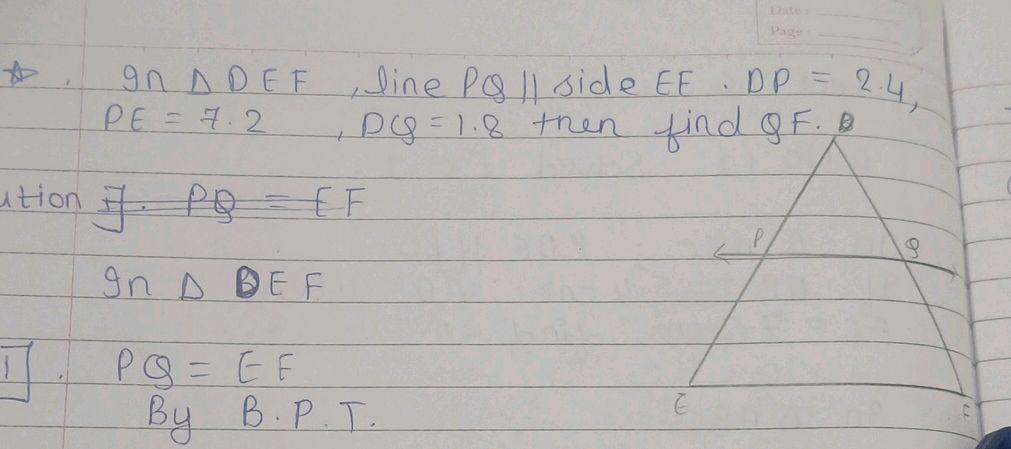 Date:
Page
☆. In △ DEF, line PQ || side EF. DP = 2.4,
PE = 7.2, DQ = 1.8 then find QF.
D
ution I]. PQ = EF
P Q
In △ DEF
I]. PQ = EF
By B.P.T.
E F